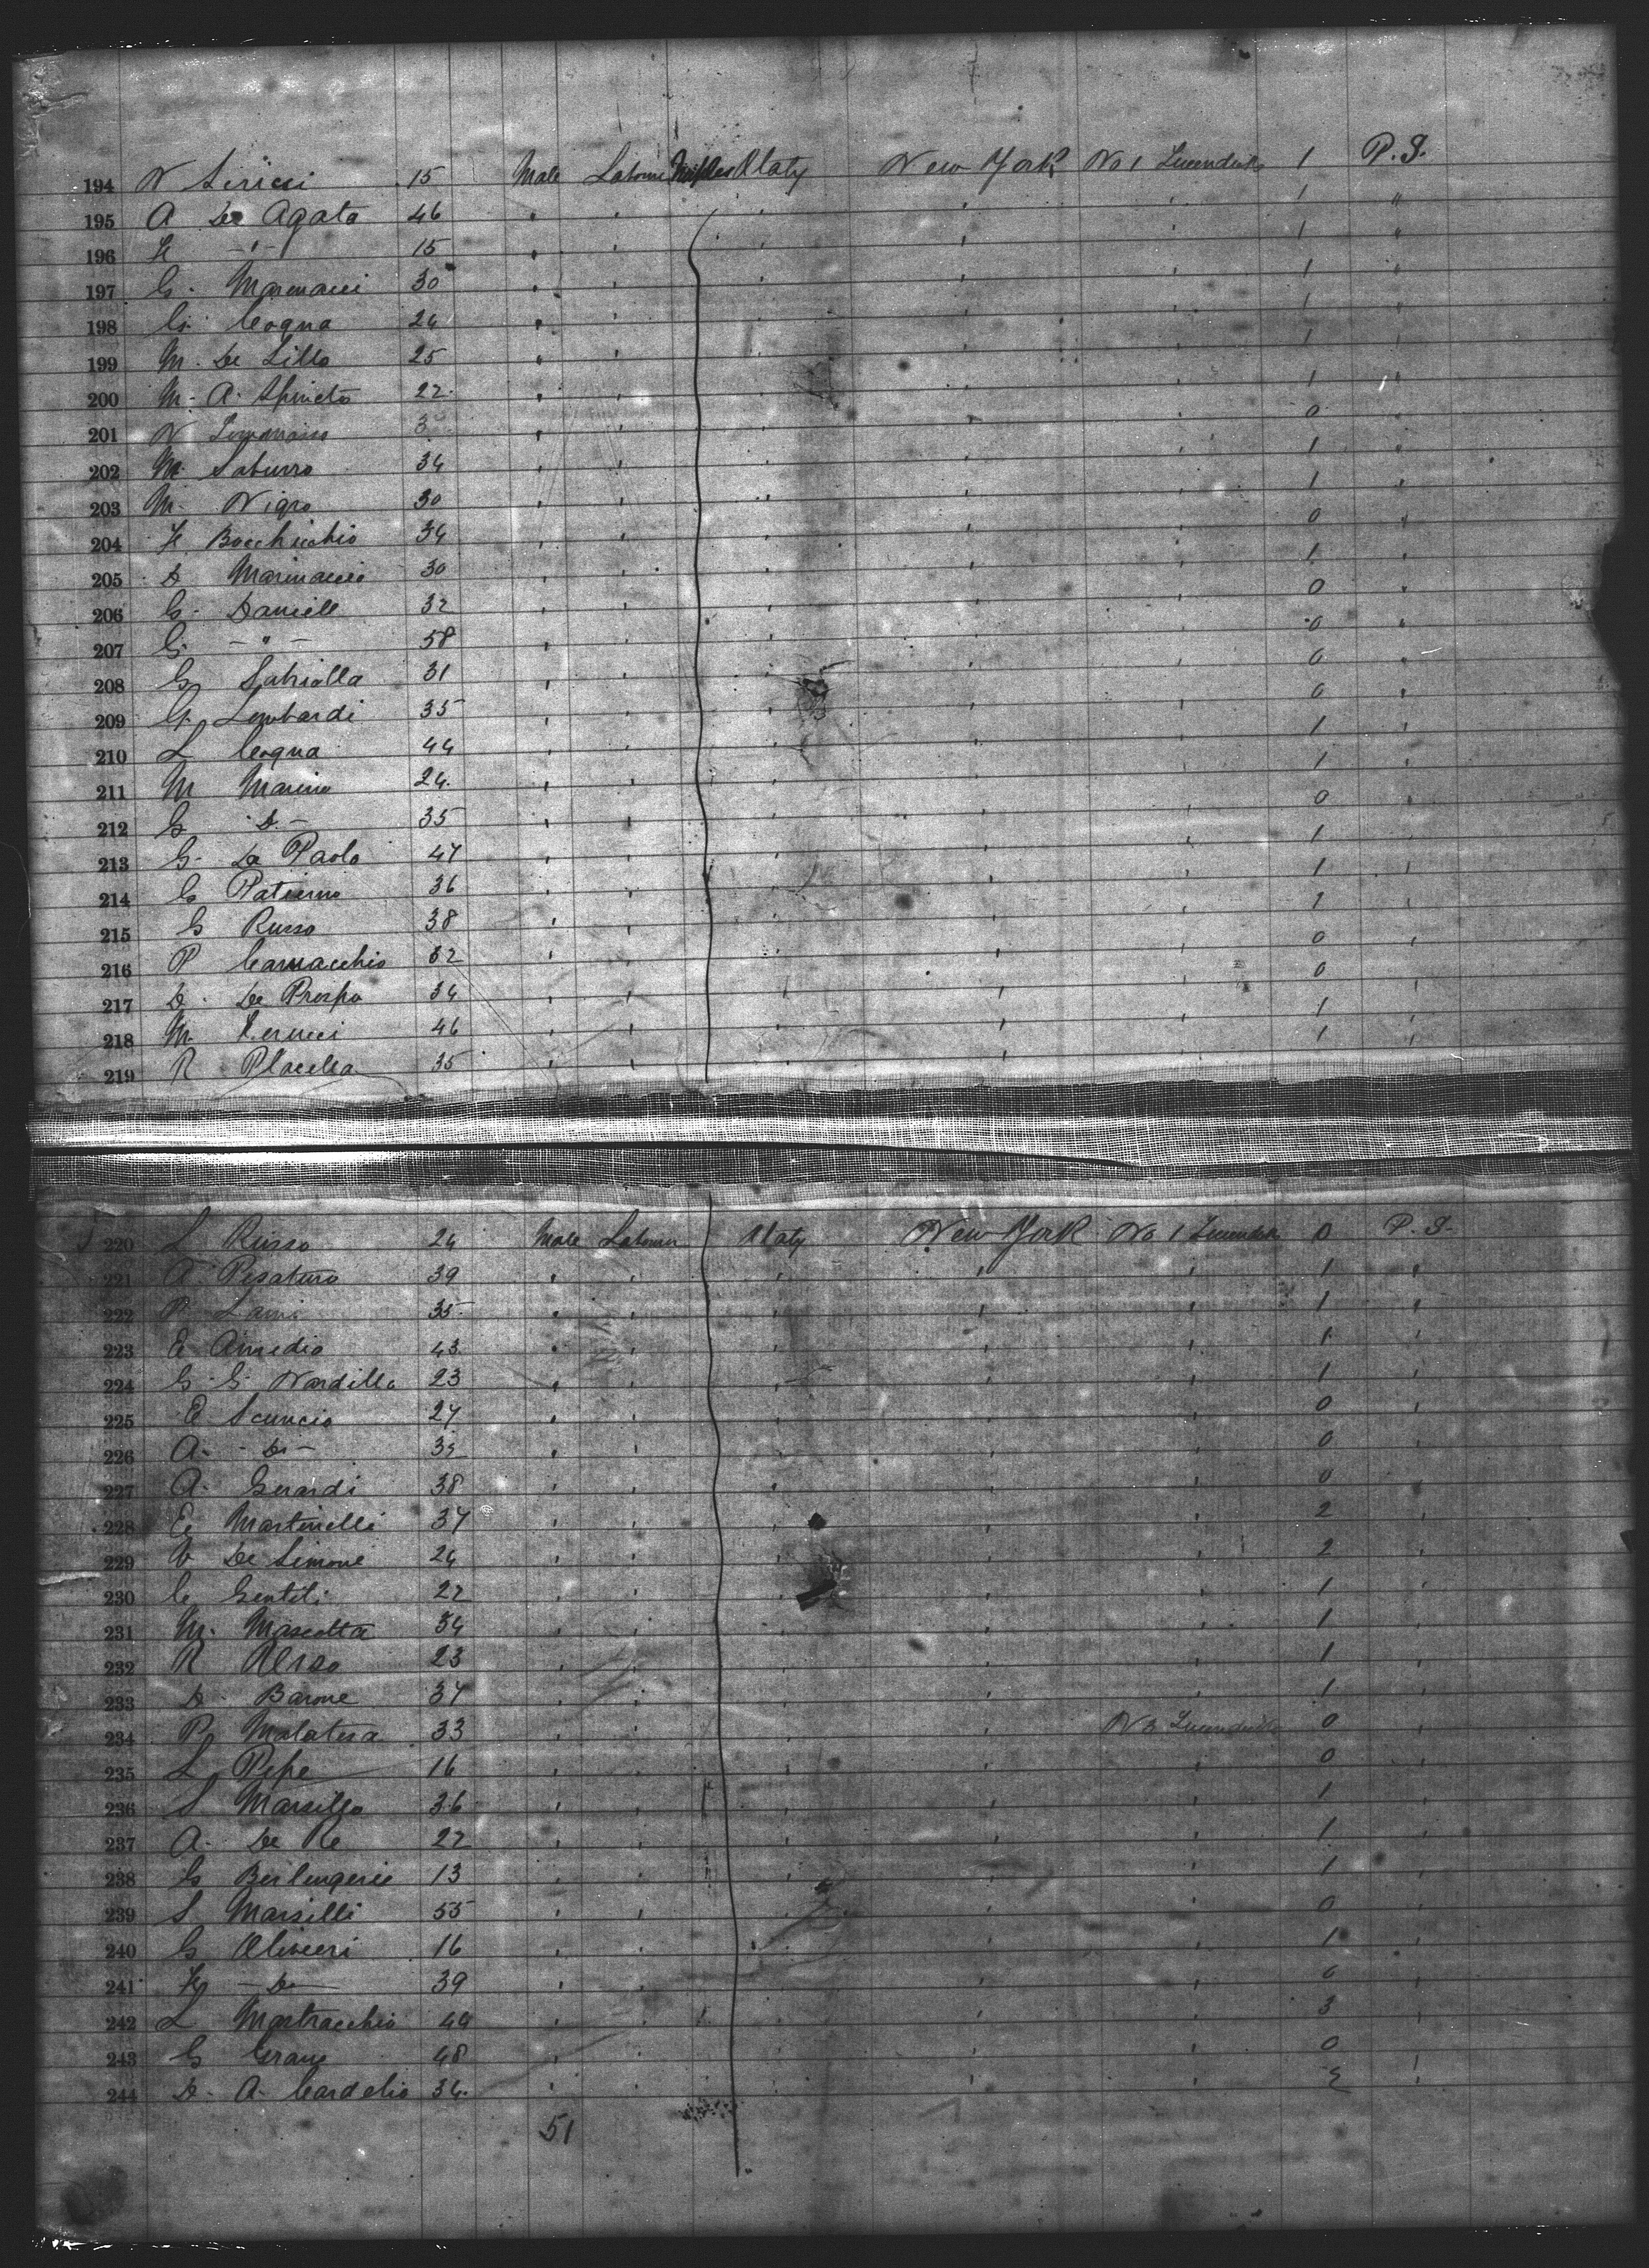 194 N 15 Male Italy New York No 1 1 P. S.
195 A De Agata 46 " " " " " 1 "
196 F -"- 15 " " " " " 1 "
197 G. Marinacci 30 " " " " " 1 "
198 G. Cogna 24 " " " 1 "
199 M. De Lillo 25 " " 1 "
200 M. A. Spineto 22 " " " " 1 "
201 N Tommaso " " " " " 0 "
202 M. Saturro 34 " " " " " 1 "
203 M. Nigro 30 " " " " " 1 "
204 F. Bocchicchio 34 " " " " " 0 "
205 D Marinaccio 30 " " " " " 1 "
206 G. Daniele 32 " " " " " 0 "
207 G. - " - 58 " " " " 0 "
208 G 31 " " " " " 0 "
209 G. Lombardi 35 " " " " " 0 "
210 L Cogna 44 " " " " " 1 "
211 M Marino 24 " " " " " 1 "
212 G D.- 35 " " " " " 0
213 G. De Paolo 47 " " " " " 1
214 G Patierno 36 " " " " " 1
215 G Russo 38 " " " " " 1
216 P Carnacchio " " " " 0 "
217 D. De Prospo 34 " " " " 0 "
218 M. 46 " " " " " 1
219 R Placella 35 " " " " " 1 "
220 L Russo 24 Male Labourer Italy New York No 1 0 P. S.
221 A Pisaturo 39 " " " " " 1 "
222 P 35 " " " " " 1 "
223 E Amedio 43 " " " " 1 "
224 G. G. Nardillo 23 " " " " 1 "
225 E Scuncio 27 " " " 0 "
226 A. - Do - 35 " " " " " 0 "
227 A. Gerardi 38 " " " " 0 "
228 E. Martinelli 37 " " " " " 2 "
229 V De Simone 24 " " " " " 2 "
230 C Gentili 22 " " " " " 1 "
231 M. Mascotta 34 " " " " 1 "
232 R 23 " " 1
233 D. Barone 37 " " " " 1 "
234 P. Malatesa 33 " " " " 0 "
235 L Pepe 16 " " " " 0 "
236 S Marsillo 36 " " " " 1 "
237 A. De Re 22 " " " " " 1 "
238 G Berlengerie 13 " " " " 1 "
239 S Marsilli 55 " " " " 0 "
240 G Olivieri 16 " " " " 1 "
241 F. - Do - 39 " " " " 0
242 L Mastracchio " " " " 3
243 G 48 " " " " 0 "
244 D. A. Cardelio 34 " " " " "
51